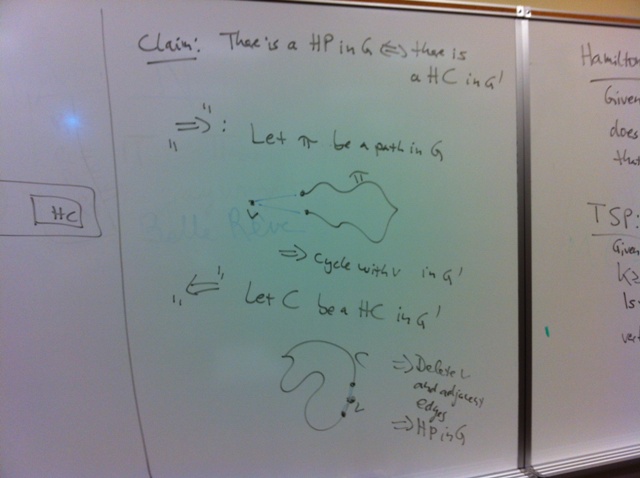 HC
Claim: There is a HP in G ⇔ there is
a HC in G'
"⇒": Let π be a path in G
π
v
⇒ Cycle with v in G'
"⇐" Let C be a HC in G'
C
v
⇒ Delete v
and adjacent
edges
⇒ HP in G
Hamilton
Given
does
that
TSP:
Given
Is
vert